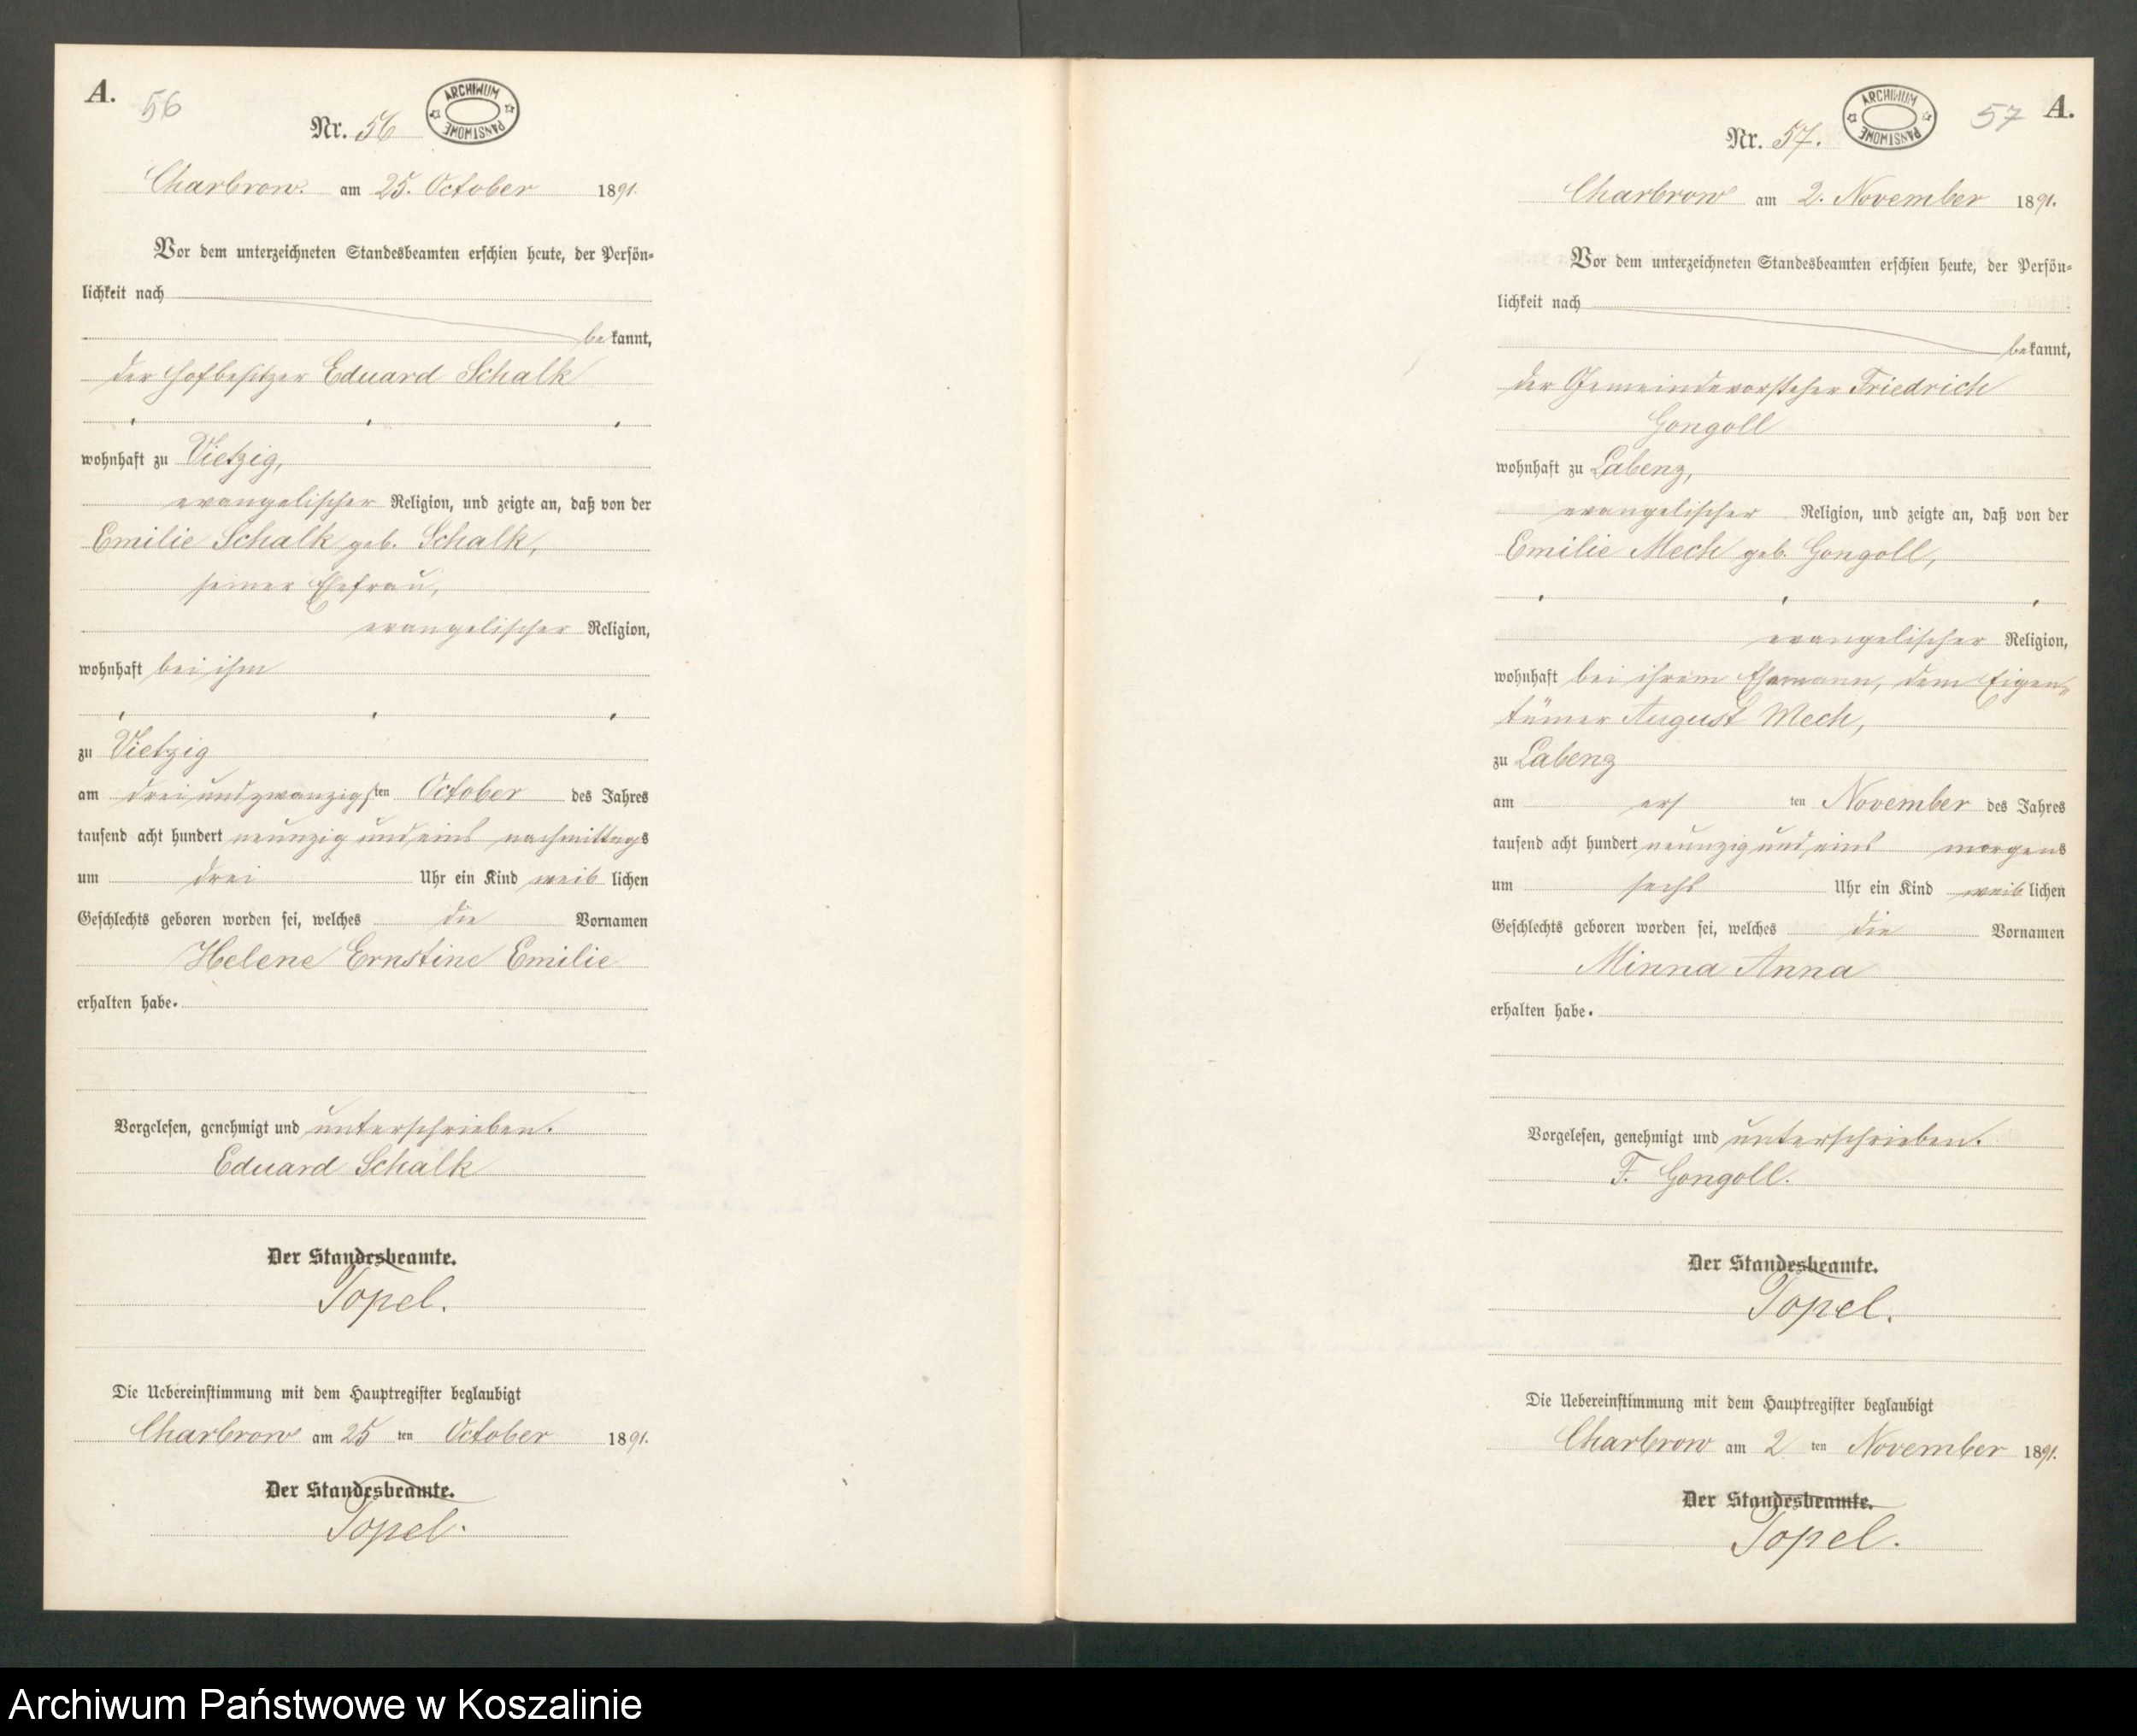 A.
56
Nr. 56
ARCHIWUM PAŃSTWOWE
Charbrow. am 25. October 1891.
Vor dem unterzeichneten Standesbeamten erschien heute, der Persön=
lichkeit nach
bekannt,
der Hofbesitzer Eduard Schalk
wohnhaft zu Vietzig,
evangelischer Religion, und zeigte an, daß von der
Emilie Schalk geb. Schalk,
seiner Ehefrau,
evangelischer Religion,
wohnhaft bei ihm
zu Vietzig
am dreiundzwanzigsten October des Jahres
tausend acht hundert neunzig und eins nachmittags
um drei Uhr ein Kind weiblichen
Geschlechts geboren worden sei, welches die Vornamen
Helene Ernstine Emilie
erhalten habe.
Vorgelesen, genehmigt und unterschrieben.
Eduard Schalk
Der Standesbeamte.
Topel.
Die Uebereinstimmung mit dem Hauptregister beglaubigt
Charbrow am 25 ten October 1891.
Der Standesbeamte.
Topel.
57 A.
Nr. 57.
ARCHIWUM PAŃSTWOWE
Charbrow am 2. November 1891.
Vor dem unterzeichneten Standesbeamten erschien heute, der Persön=
lichkeit nach
bekannt,
der Gemeindevorsteher Friedrich
Gongoll
wohnhaft zu Labenz,
evangelischer Religion, und zeigte an, daß von der
Emilie Mech geb. Gongoll,
evangelischer Religion,
wohnhaft bei ihrem Ehemann, dem Eigen=
tümer August Mech,
zu Labenz
am ersten November des Jahres
tausend acht hundert neunzig und eins morgens
um sechs Uhr ein Kind weiblichen
Geschlechts geboren worden sei, welches die Vornamen
Minna Anna
erhalten habe.
Vorgelesen, genehmigt und unterschrieben.
F. Gongoll.
Der Standesbeamte.
Topel.
Die Uebereinstimmung mit dem Hauptregister beglaubigt
Charbrow am 2 ten November 1891.
Der Standesbeamte.
Topel.
Archiwum Państwowe w Koszalinie